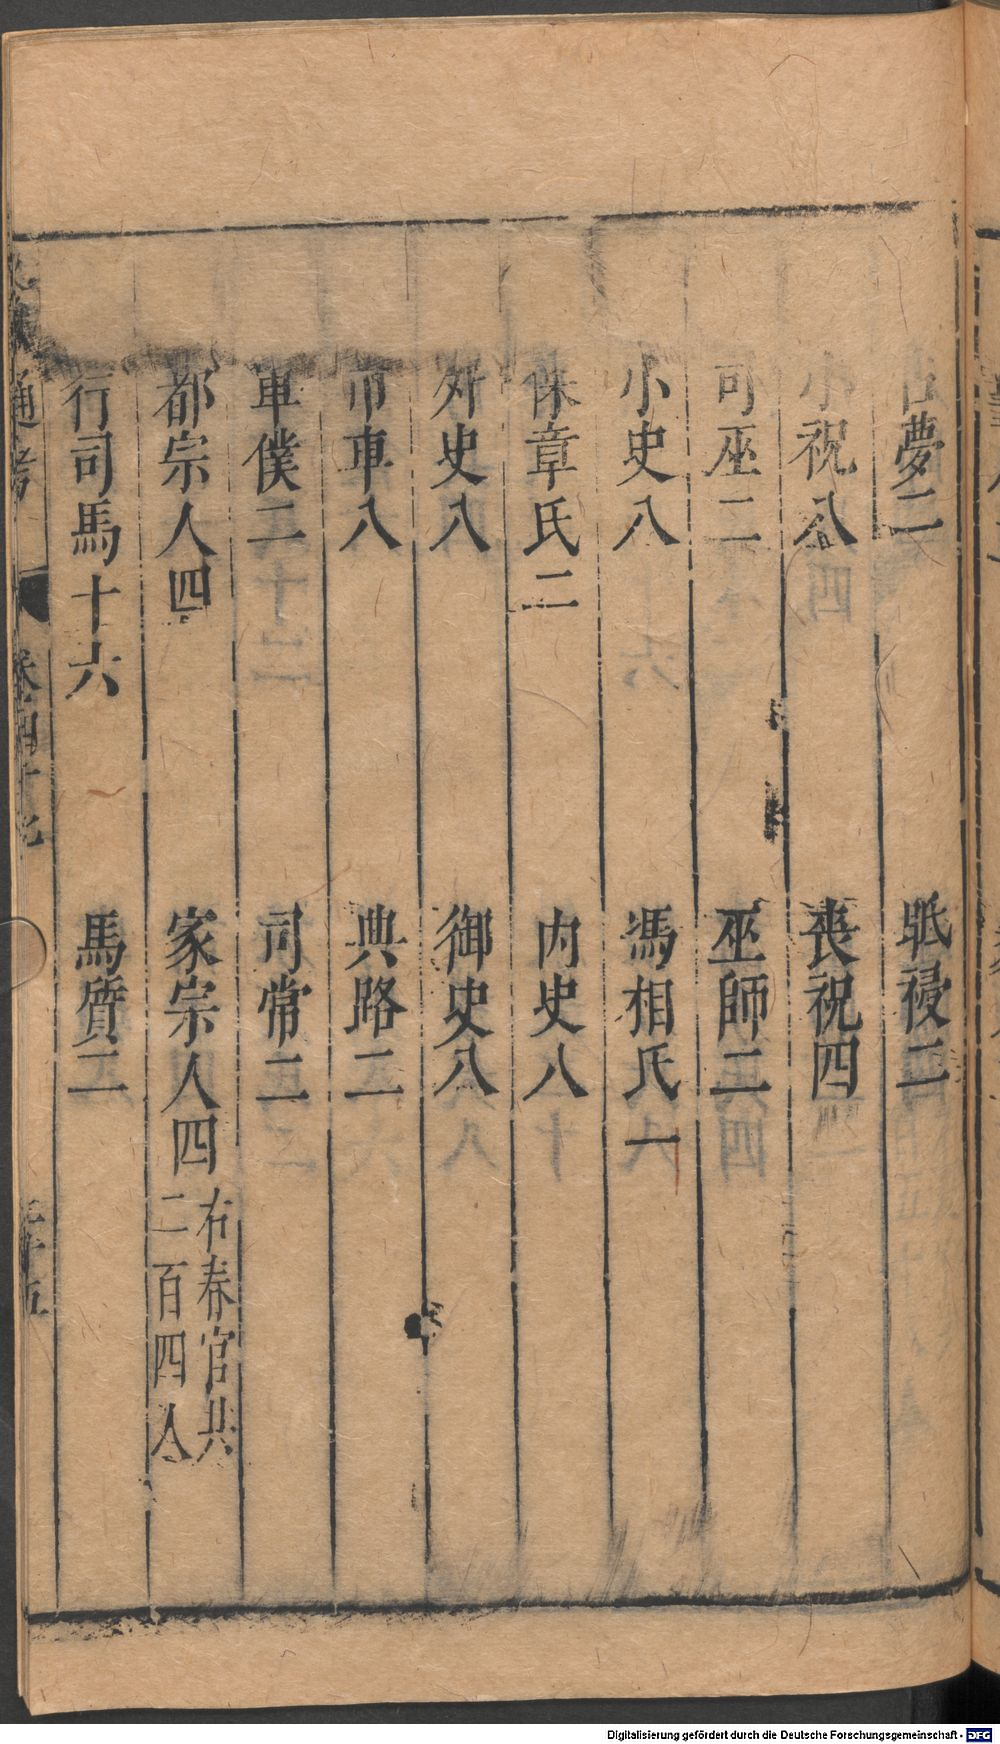 占夢二 眡祲二
小祝八 喪祝四
司巫二 巫師二
小史八 馮相氏一
保章氏二 內史八
外史八 御史八
巾車八 典路二
車僕二 司常二
都宗人四 家宗人四 右春官共二百四人
行司馬十六 馬質二
通考 卷四十七
Digitalisierung gefördert durch die Deutsche Forschungsgemeinschaft - DFG